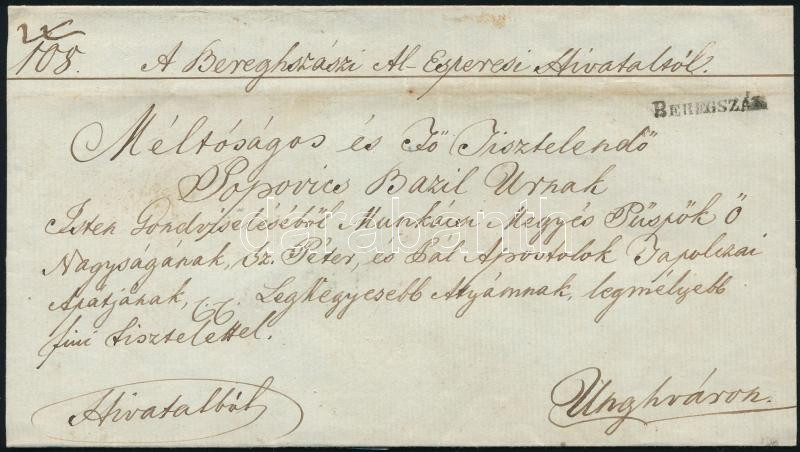 108. A Bereghszászi Al-Esperesi Hivataltól.
BEREGSZÁSZ
Méltóságos és Fő Tisztelendő
Popovics Bazil Urnak
Isten Gondviseléséből Munkácsi Megyés Püspök Ő
Nagyságának, Sz. Péter, és Pál Apostolok Tapolczai
Apátjának, Legkegyesebb Atyámnak, legmélyebb
fiui tisztelettel.
Hivatalból
Unghváron.
darabanth